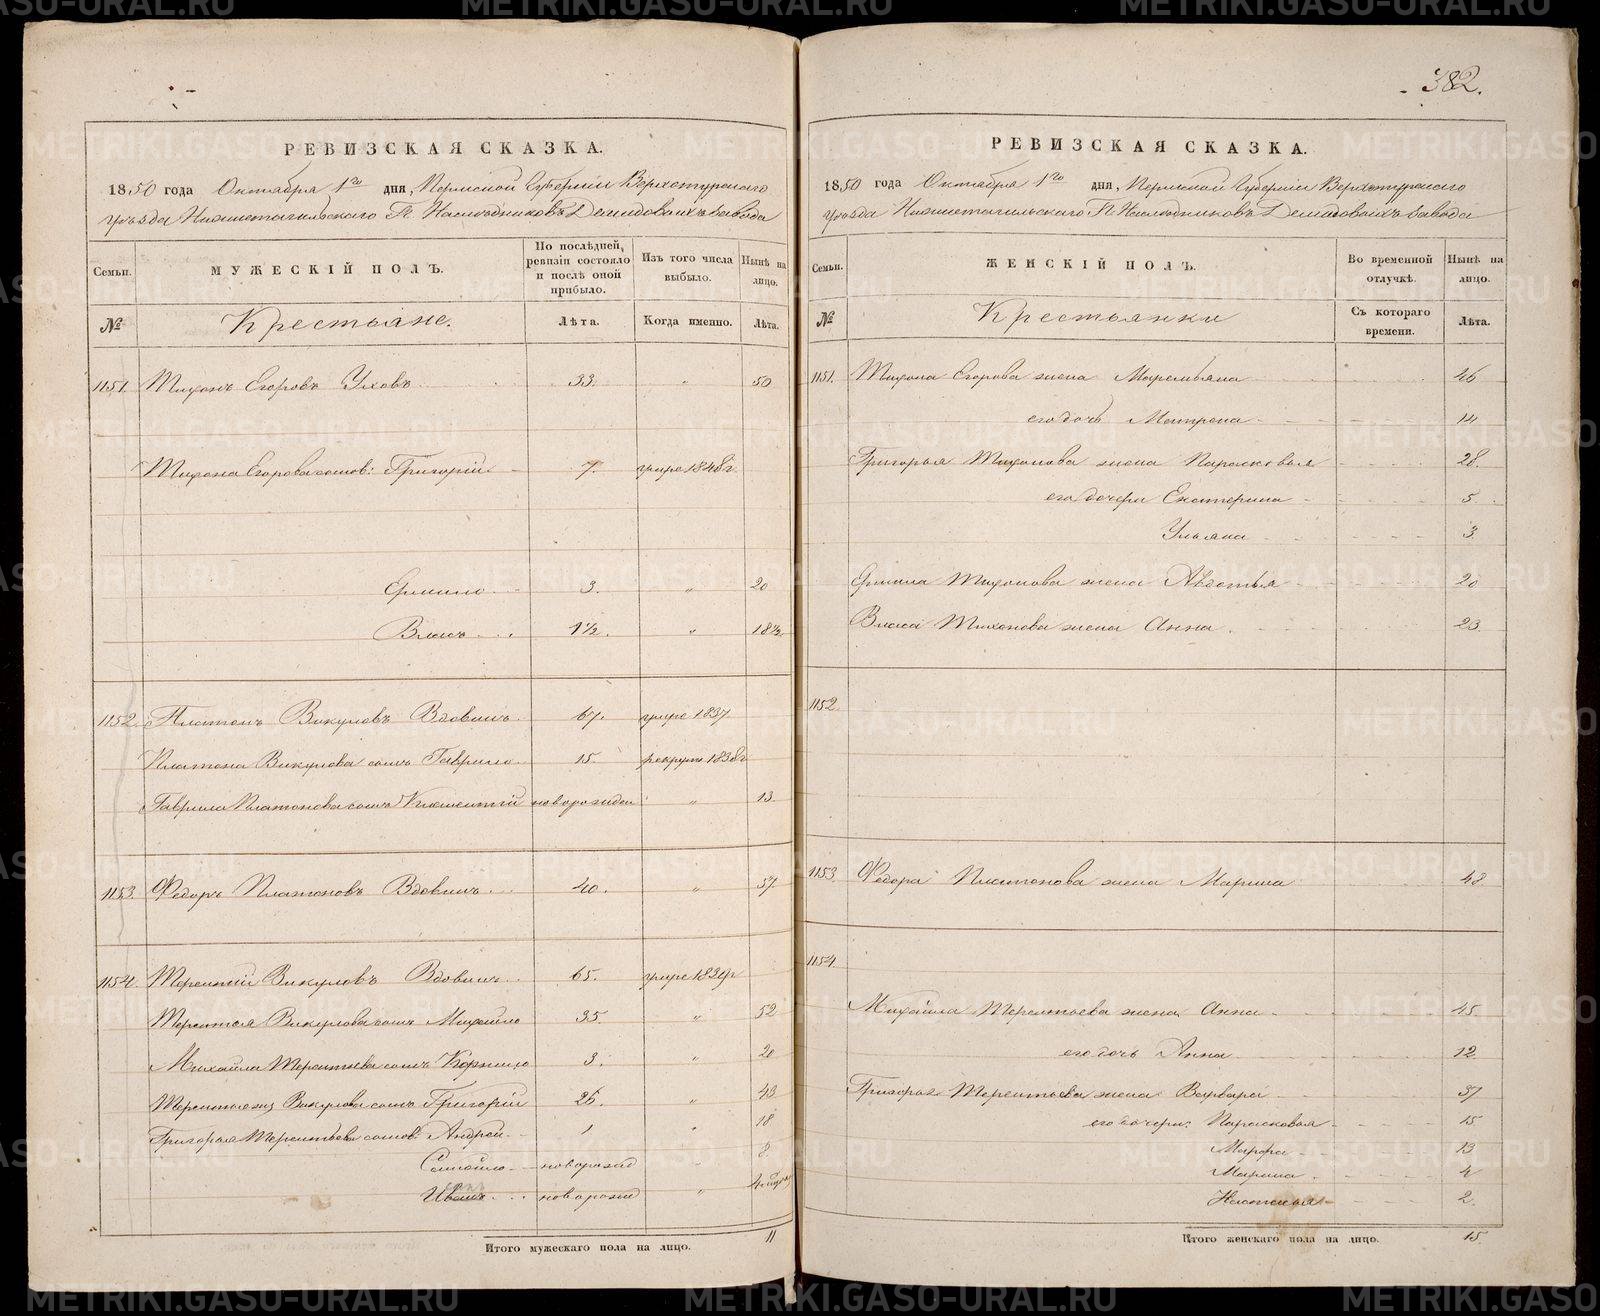 382.
РЕВИЗСКАЯ СКАЗКА.
1850 года Октября 1го дня, Пермской Губернии Верхотурскаго
уѣзда Нижнетагильскаго Г. Наслѣдниковъ Демидовыхъ завода
Семьи. МУЖЕСКІЙ ПОЛЪ. По послѣдней ревизіи состояло и послѣ оной прибыло. Изъ того числа выбыло. Нынѣ на лицо.
№ Крестьяне. Лѣта. Когда именно. Лѣта.
1151. Тихонъ Егоровъ Уховъ 33. " 50
Тихона Егорова сынов: Григорій 7. умре 1848г.
Ермило 3. " 20
Власъ 1½. " 18½.
1152. Платонъ Викуловъ Вдовинъ 67. умре 1837
Платона Викулова сынъ Гаврило 15. рекрутъ 1838г
Гаврила Платонова сынъ новорожден " 13
1153. Федоръ Платоновъ Вдовинъ 40. " 57.
1154. Терентій Викуловъ Вдовинъ 65. умре
Терентья Викулова сынъ Михайло 35. " 52
Михайла Терентьева сынъ Корнило 3. " 20
Терентья Викулова сынъ Григорій 26. " 43
Григорья Терентьева сынов: Андрей 1 " 18
Самойло новорожд 8.
Иванъ новорожд "
Итого мужескаго пола на лицо. 11
РЕВИЗСКАЯ СКАЗКА.
1850 года Октября 1го дня, Пермской Губерніи Верхотурскаго
уѣзда Нижнетагильскаго Г. Наслѣдниковъ Демидовыхъ завода
Семьи. ЖЕНСКІЙ ПОЛЪ. Во временной отлучкѣ. Нынѣ на лицо.
№ Крестьянки Съ котораго времени. Лѣта.
1151. Тихона Егорова жена Маремьяна 46
его дочь Матрена 14
Григорья Тихонова жена Парасковья 28.
его дочери Екатерина 5.
Ульяна 3.
Ермила Тихонова жена Авдотья 20
Власа Тихонова жена Анна 23.
1152.
1153. Федора Платонова жена Марина 48
1154.
Михайла Терентьева жена Анна 45
его дочь Анна 12
Григорья Терентьева жена Варвара 37
его дочери: Парасковья 15
Марфа 13
Марина 4
Настасья 2.
Итого женскаго пола на лицо. 15.
METRIKI.GASO-URAL.RU